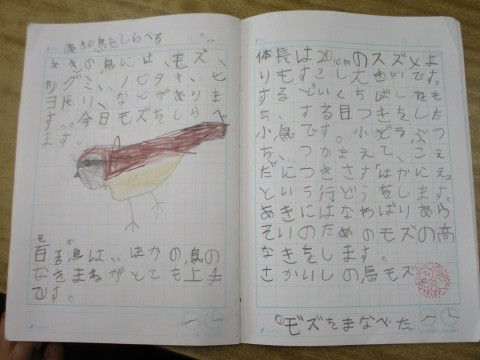 あきの鳥をしらべる
あきの鳥には、モズ、
ツグミ、ノビタキ、ヒ
ヨドリ、などがありま
す。今日モズをしらべ
ます。
モ ズ
百舌鳥は、ほかの鳥の
なきまねがとても上手
です。
体長は20cmのスズメよ
りもすこし大きいです。
するどいくちばしをも
ち、する目つきをした
小鳥です。小どうぶつ
を、つかまえて、こえ
だにつきさす「はにえ」
という行どうをします。
あきにはなわばりあら
そいのためのモズの高
なきをします。
さかいしの鳥モズ
モズをまなべた